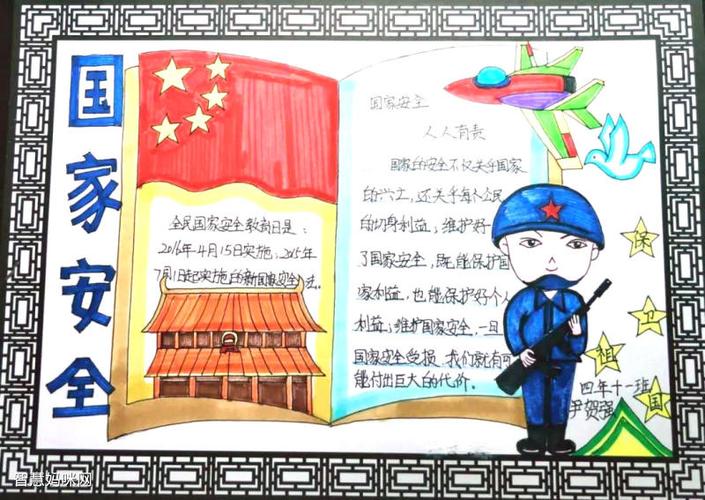 国家安全
全民国家安全教育日是：
2016年4月15日实施，2015年
7月1日起实施的新国家安全法。
国家安全
人人有责
国家的安全不仅关乎国家
的兴亡，还关乎每个公民
的切身利益，维护好
了国家安全，既能保护国
家利益，也能保护好个人
利益；维护国家安全，一旦
国家安全受损，我们就有可
能付出巨大的代价。
保卫祖国
四年十一班
尹贺强
智慧妈咪网